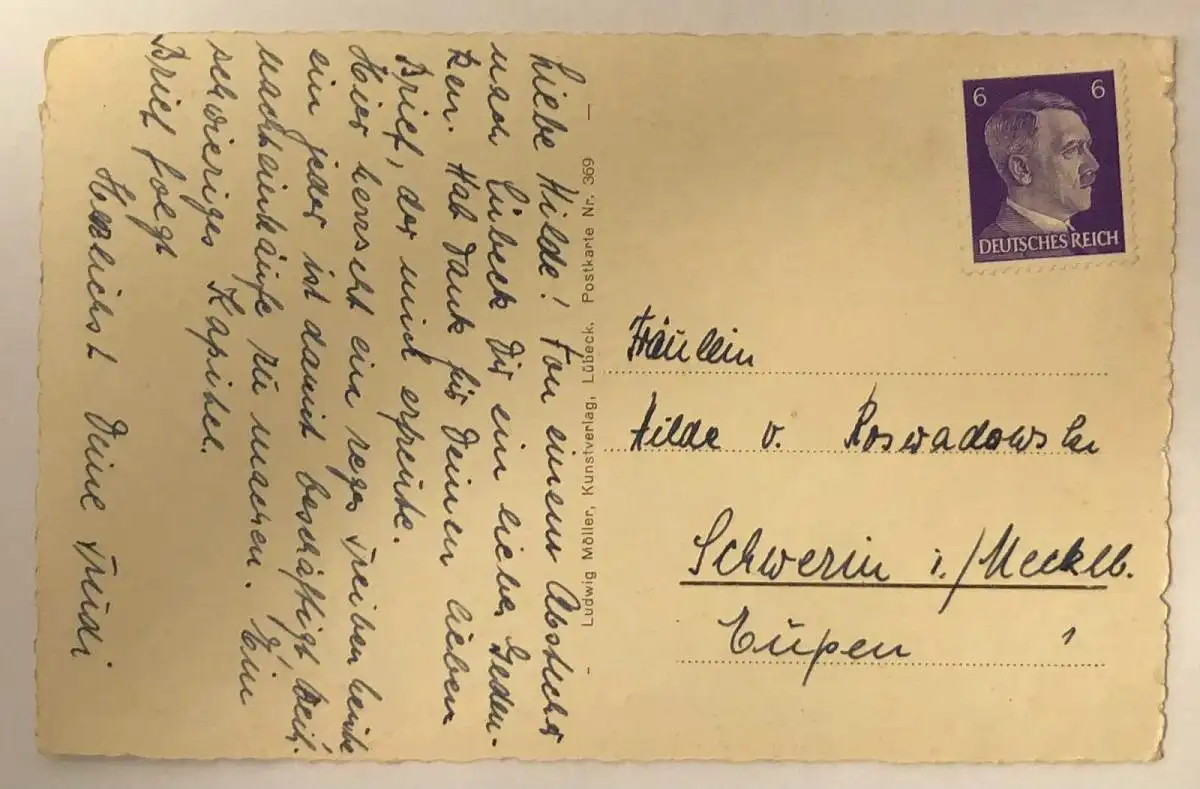 Liebe Hilde! Von einem Abstecher
nach Lübeck Dir ein liebes Geden-
ken. Hab Dank für Deinen lieben
Brief, der mich erfreute.
Hier herrscht ein reges Treiben heute
ein jeder ist damit beschäftigt, Weih-
nachteinkäufe zu machen. Ein
schwieriges Kapitel.
Brief folgt
Herzlichst Deine Trudi
Ludwig Möller, Kunstverlag, Lübeck. Postkarte Nr. 369
6 6
DEUTSCHES REICH
Fräulein
Hilde v. Roswadowski
Schwerin i./Mecklb.